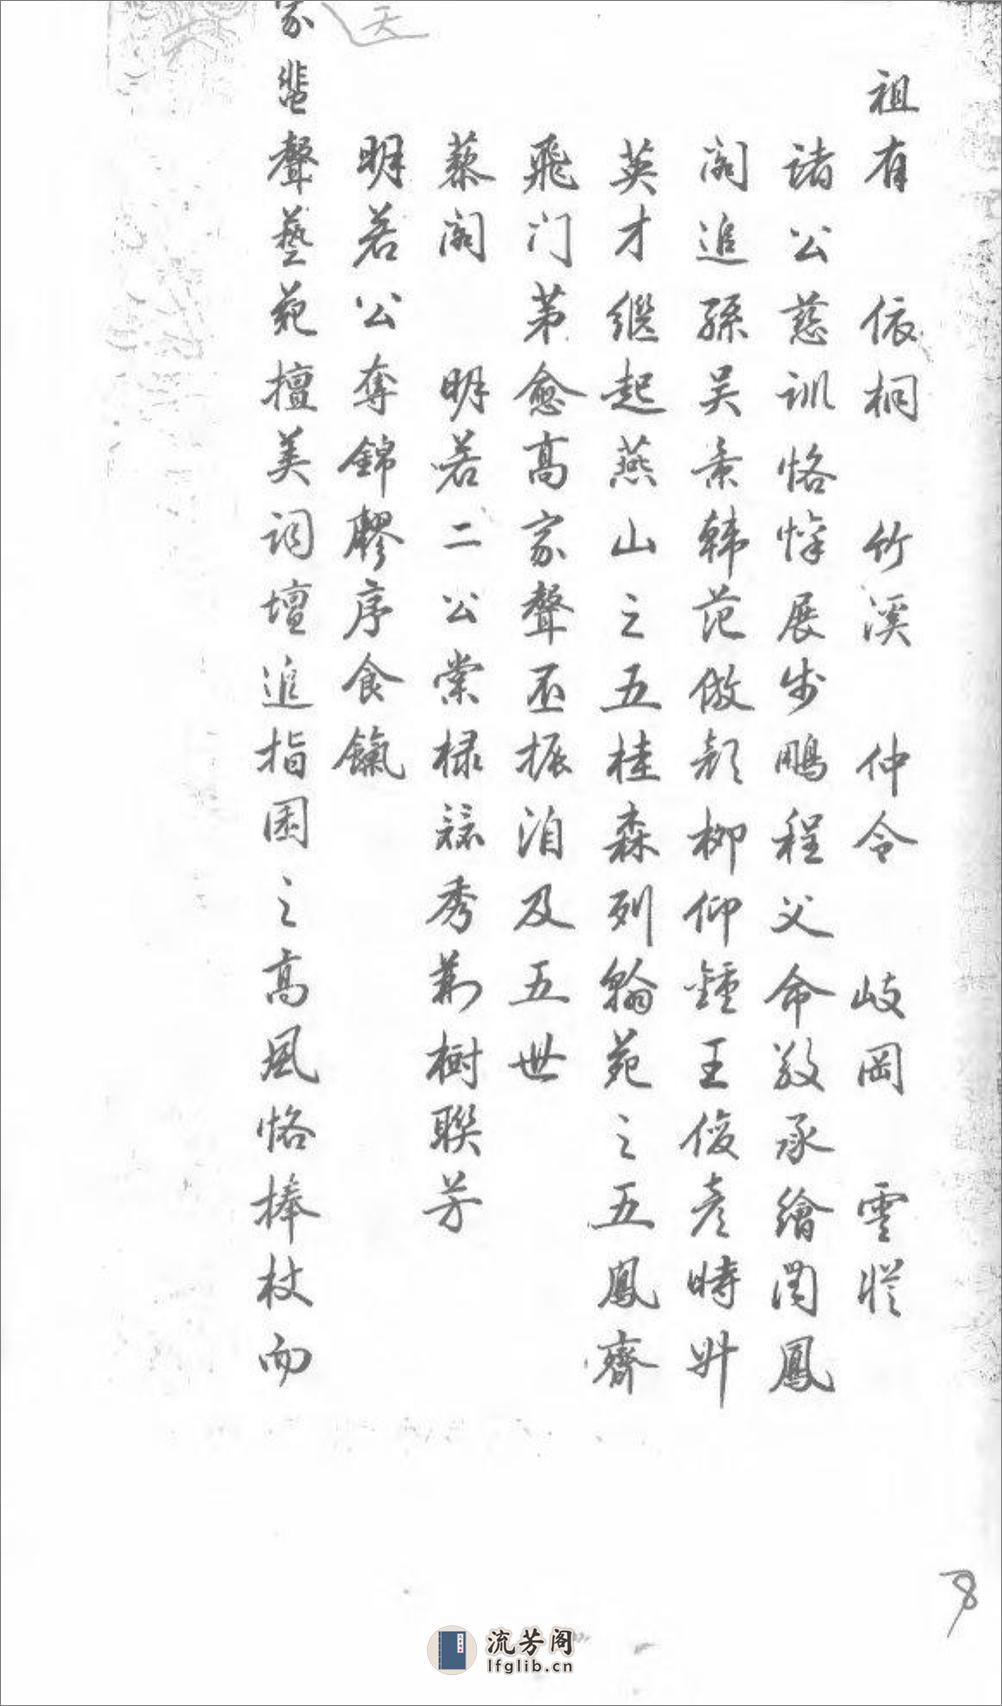 祖有 依桐 竹溪 仲令 岐岡 雲從
諸公慈訓恪悙展步鵬程父命敬承繪閣鳳
閣追孫吴秉韩范倣颜柳仰鍾王俊彦時升
英才继起燕山之五桂森列翰苑之五鳳齊
飛门苐愈高家聲丕振洎及五世
藜阁 明若二公棠棣競秀荆樹聯芳
明若公奪錦膠序食餼
家蜚聲藝苑擅美词壇追指囷之高風恪捧杖而
天
8
流芳阁
lfglib.cn